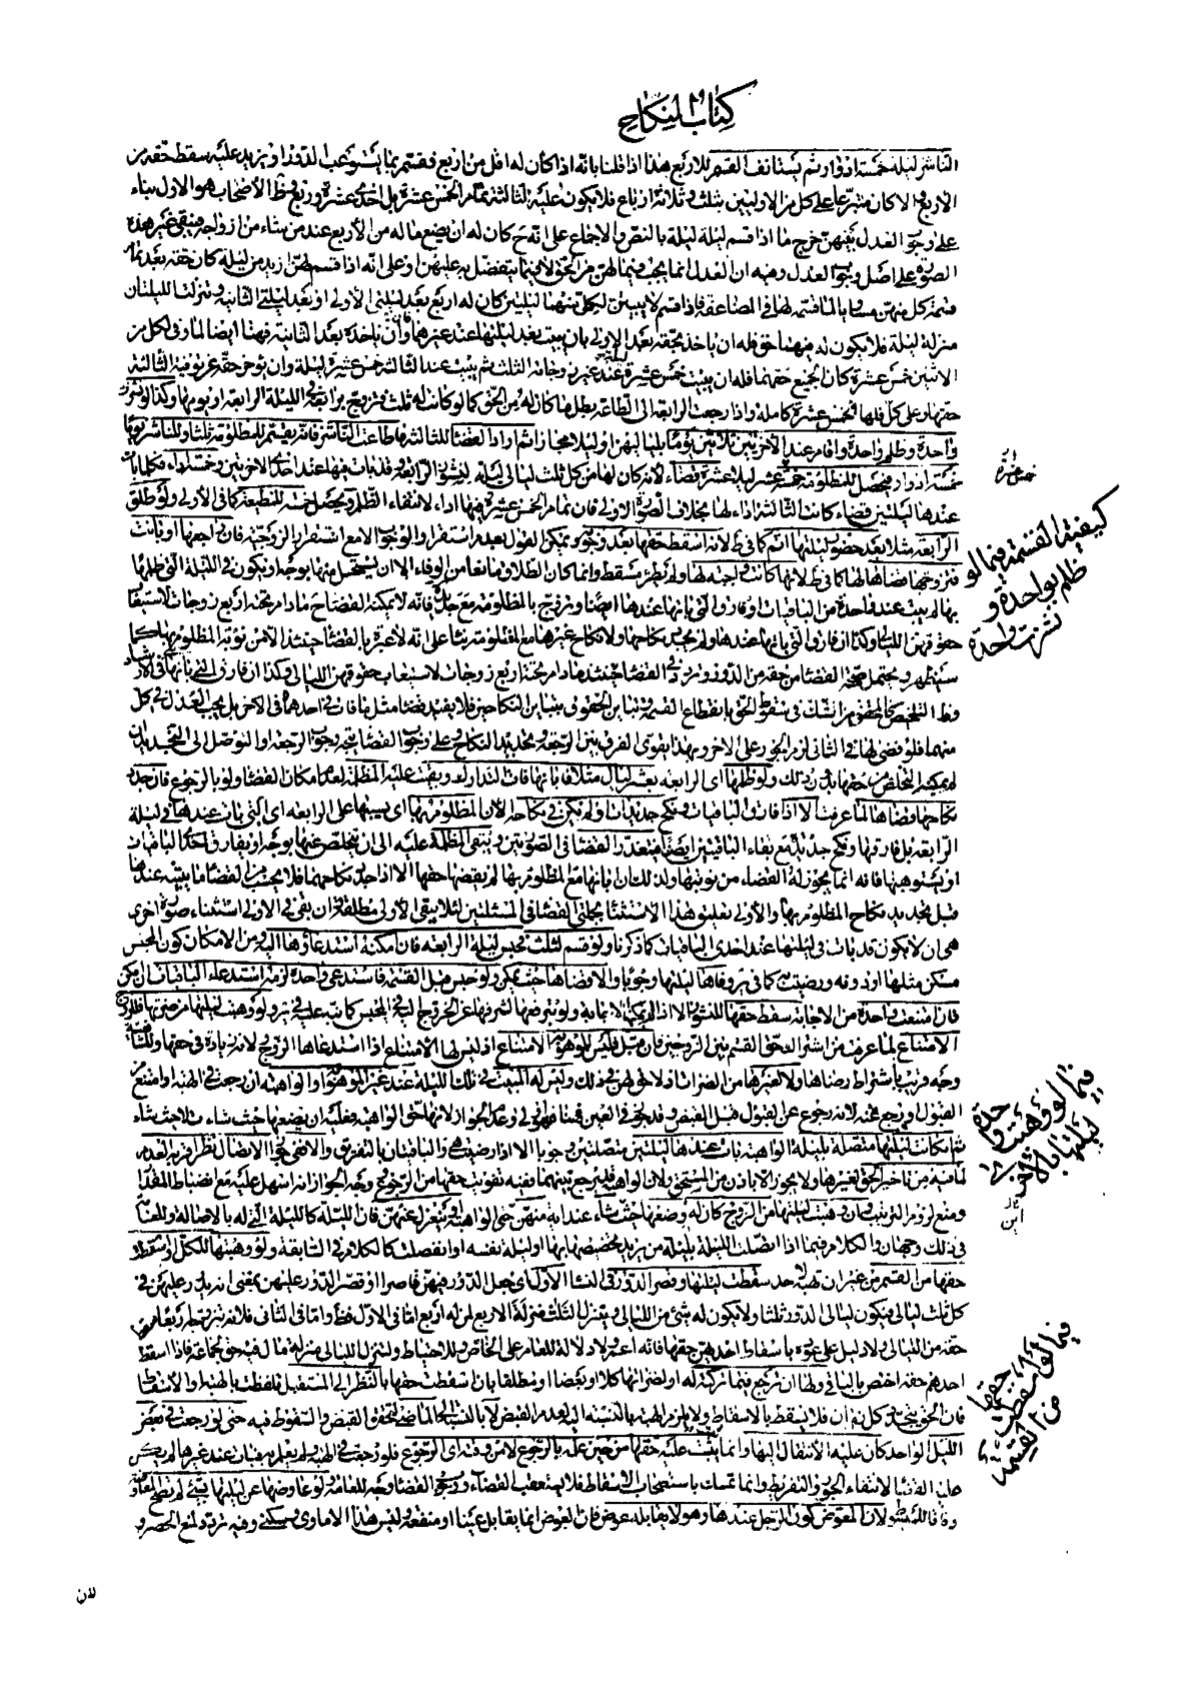 كتاب النكاح
الناشز ليلة خمسة ادوار ثم يستانف القسم للاربع هذا اذا قلنا بانه اذا كان له اقل من اربع فقسم بما يستوعب الدور او يزيد عليه سقط حقه من
الاربع والا كان متبرعا على كل من الاوليين بثلث وثلاثة ارباع فلا يكون عليه للثالثة تمام الخمس عشرة بل احدى عشرة وربع وظ الاصحاب هو الاول بناء
على وجوب العدل بينهن خرج ما اذا قسم ليلة ليلة بالنص والاجماع على انه ح كان له ان يضع ماله من الاربع عند من شاء من ازواجه فيبقى غير هذه
الصورة على اصل وجوب العدل وفيه ان العدل انما يجب فيما لهن من الحق لا فيما يتفضل به عليهن او على انه اذا قسم لهن ازيد من ليلة كان حقه بعد تمام
قسمة كل منهن مساويا لما قسمه لها في المضاعفة فاذا قسم لاثنتين لكل منهما ليلتين كان له اربع بعد ليلتي الاولى او بعد ليلتي الثانية وتنزلتا الليلتان
منزلة ليلة فلا يكون له فيهما حق فله ان ياخذ بحقه بعد الاولى بان يبيت بعد ليلتيها عند غيرها وان ياخذه بعد الثانية فهنا ايضا لما وفى لكل من
الاثنتين خمس عشرة كان الجميع حقهما فله ان يبيت خمس عشرة ليلة عند غيرهن وخانه الثلث ثم يبيت عند الثالثة خمس عشرة ليلة وان يؤخر حقه عن توفية الثالثة
حقها وعلى كل فلها خمس عشرة كاملة واذا رجعت الرابعة الى الطاعة بطل ما كان له من الحق كما لو كانت له ثلث فتزوج برابعة في الليلة الرابعة او يومها وكذا لو نشزت
واحدة وظلم واحدة واقام عند الاخريين ثلاثين يوما بلياليهن او ليلا مجازا ثم اراد القضاء للثالثة فاطاعت الناشز فانه يقسم للمظلومة ثلثا وللناشز يوما
خمسة ادوار فيحصل للمظلومة خمسة عشر ليلا عشرة قضاء لانه كان لها من كل ثلث ليالي ليلة
عندها ليلتين قضاء كانت الثالثة اداء لها بخلاف الصورة الاولى فان تمام الخمس عشرة فيها اداء لانتفاء الظلم ويحصل خمسة للمطيعة كما في الاولى ولو طلق
الرابعة مثلا بعد حضور ليلتها اثم كما في ط لانه اسقط حقها بعد وجوبه ويمكن القول بعد استقراره اذ لا وجوب الا مع استقرار الزوجية فان راجعها او بانت
فتزوجها قضاها لها كما في ط لانها كانت واجبة لها ولم يطرء مسقط وانما كان الطلاق مانعا من الوفاء الا ان يستحيل منها بوجه او يكون في الليلة التي ظلمها
بها لم يبت عند واحدة من الباقيات او فارق التي باتها عندها ايضا وتزوج بالمظلومة مع جدد فانه لا يمكنه القضاء ح ما دام تحته اربع زوجات لاستيعاب
حقوقهن الليالي وكذا ان فارق التي باتها عندها ولم يجدد نكاحها ولا نكاح غيرها مع المظلومة بناء على انه لا عبرة بالقضاء حينئذ الا من نوبة المظلوم بها كما
سيظهر ويحتمل صحة القضاء من حقه من الدور
وظ التلخيص كالمقنع الشك في سقوط الحق بانقطاع القسمة وتباين الحقوق بتباين النكاحين فلا يفيد قضاء مثل ما فات في احدهما في الاخر بل يجب العدل في كل
منهما فلو قضى لها في الثاني لزم الجور على الاخر وبهذا يقوى الفرق بين الرجعة وتجديد النكاح وعلى وجوب القضاء يتجه وجوب الرجعة او التوصل الى التجديد ان
لم يمكنه التخلص من حقها بدون ذلك ولو ظلمها اي الرابعة بعشر ليال مثلا فابانها فات التدارك وبقيت عليه المظلمة لعدم امكان القضاء ولو بالرجوع فان جدد
نكاحها قضاها لما عرفت الا اذا فارق الباقيات ونكح جديدات ولم تكن في نكاحه الان المظلوم بها اي بسببها على الرابعة اي التي بات عندها في ليلة
الرابعة بل فارقها ونكح جديدة مع بقاء الباقيتين ايضا فيتعذر القضاء في الصورتين وتبقى المظلمة عليه الى ان يتخلص عنها بوجه او يفارق احد الباقيات
او يستوهبها فانه انما يجوز له القضاء من نوبتها ولذلك ان ابانها مع المظلوم بها لم يقضها حقها الا اذا جدد نكاحهما فلا يحتسب من القضاء ما يبيته عندها
قبل تجديد نكاح المظلوم بها والاولى تعليق هذا الاستثناء بجملتي القضاء في المسئلتين لئلا يبقى الاولى مطلقة وان بقي في الاولى استثناء صورة اخرى
هي ان لا يكون قد بات في ليلتها عند احدى الباقيات كما ذكرنا ولو قسم لثلث فحبس ليلة الرابعة فان امكنه استدعاؤها اليه ومن الامكان كون الحبس
مسكن مثلها او دونه ورضيت كما في ير وفاها ليلتها وجوبا والا قضاها حيث يمكن ولو حبس قبل القسمة فاستدعى واحدة لزمه استدعاء الباقيات ان امكن
فان امتنعت واحدة من الاجابة سقط حقها للنشوز الا اذا لم يمكنها الاجابة ولو بترفعها لشرفها عن الخروج اليه في الحبس كما نبه عليه في ير ولو وهبت ليلتها من ضرتها فللزوج
الامتناع لما عرفت من اشتراك حق القسم بين الزوجين فان قبل فليس للموهوبة الامتناع اذ ليس لها الامتناع اذا استدعاها الزوج لانه زيادة في حقها وللشافعية
وجه قريب باشتراط رضاها ولا لغيرها من الضرات اذ لا حق لهن في ذلك وليس له المبيت في تلك الليلة عند غير الموهوبة او الواهبة ان رجعت في الهبة او امتنع من
القبول او رجع عنه لانه رجوع عن القبول قبل القبض وقد يجوز في العين فهنا فهو اولى وعدم الجواز لانها حق الواهبة فعليه ان يضعها حيث شاءت لا حيث شاء
ثم ان كانت ليلتها متصلة بليلة الواهبة بات عندها ليلتين متصلتين وجوبا الا اذا رضيت هي والباقيتان بالتفريق والاقرب وجوب الاتصال نظرا
لما فيه من تاخير الحق لغيرها ولا يجوز الا باذن من المستحق ولان الواهبة قد ترجع بينهما ففيه تفويت حقها من الرجوع ووجه الجواز انه اسهل عليه مع انضباط المقدار
ومنع لزوم الترتيب وان وهبت ليلتها من الزوج كان له وضعها حيث شاء عند اية منهن حتى الواهبة او يعتزل عنهن فان الليلة كالليلة التي له بالاصالة وللعامة
في ذلك وجهان والكلام فيما اذا اتصلت الليلة بليلة من يريد تخصيصها بها او ليلة نفسه او انفصلت كالكلام في السابقة ولو وهبتها للكل او اسقطت
حقها من القسم من غير ان تهبه لاحد سقطت ليلتها وقصر الدور في النساء الاول اي جعل الدور فيهن قاصرا او قصر الدور عليهن بمعنى انه يدور عليهن في
كل ثلث ليالي فيكون ليالي الدور ثلثا ولا يكون له شيء من الليالي
حقه من الليالي ولا دليل على عوده باسقاط احدهن حقها
احدهم حقه اختص بالباقي ولها ان ترجع فيما تركته له او لضراتها كلا او بعضا او مطلقا بان اسقطت حقها بالنظر الى المستقبل تلفظت بالهبة او الاسقاط
فان الحق يتجدد كل ان فلا يسقط بالاسقاط ولا يلزم الهبة بالنسبة اليه لعدم القبض لا بالنسبة الى الماضي لتحقق القبض والسقوط فيه حتى لو رجعت في بعض
الليل لواحد كان عليه الانتقال اليها وانما يثبت عليه حقها من حين علمه بالرجوع لا من وقته اي الرجوع فلو رجعت في الهبة ولم يعلم به فبات عند غيرها لم يكن
عليه القضاء لانتفاء الجور والتفريط وانما تمسك باستصحاب الاسقاط فلا يتعقب القضاء ووجوب القضاء وجه للعامة ولو عاوضها عن ليلتها بشيء لم تصح المعاوضة
وفاقا للمبسوط لان المعوض كون الرجل عندها وهو لا يقابله عوض فان العوض انما يقابل عينا او منفعة وليس هذا الا ماوى ومسكنى وفيه تردد لمنع الحصر و
خمس عشرة
كيفية القسمة فيما لو
ظلم بواحدة و
نشزت واحدة
فيما لو وهبت واحدة
ليلتها بالاخرى
فيما لو اسقطت حقها
من القسمة
لان